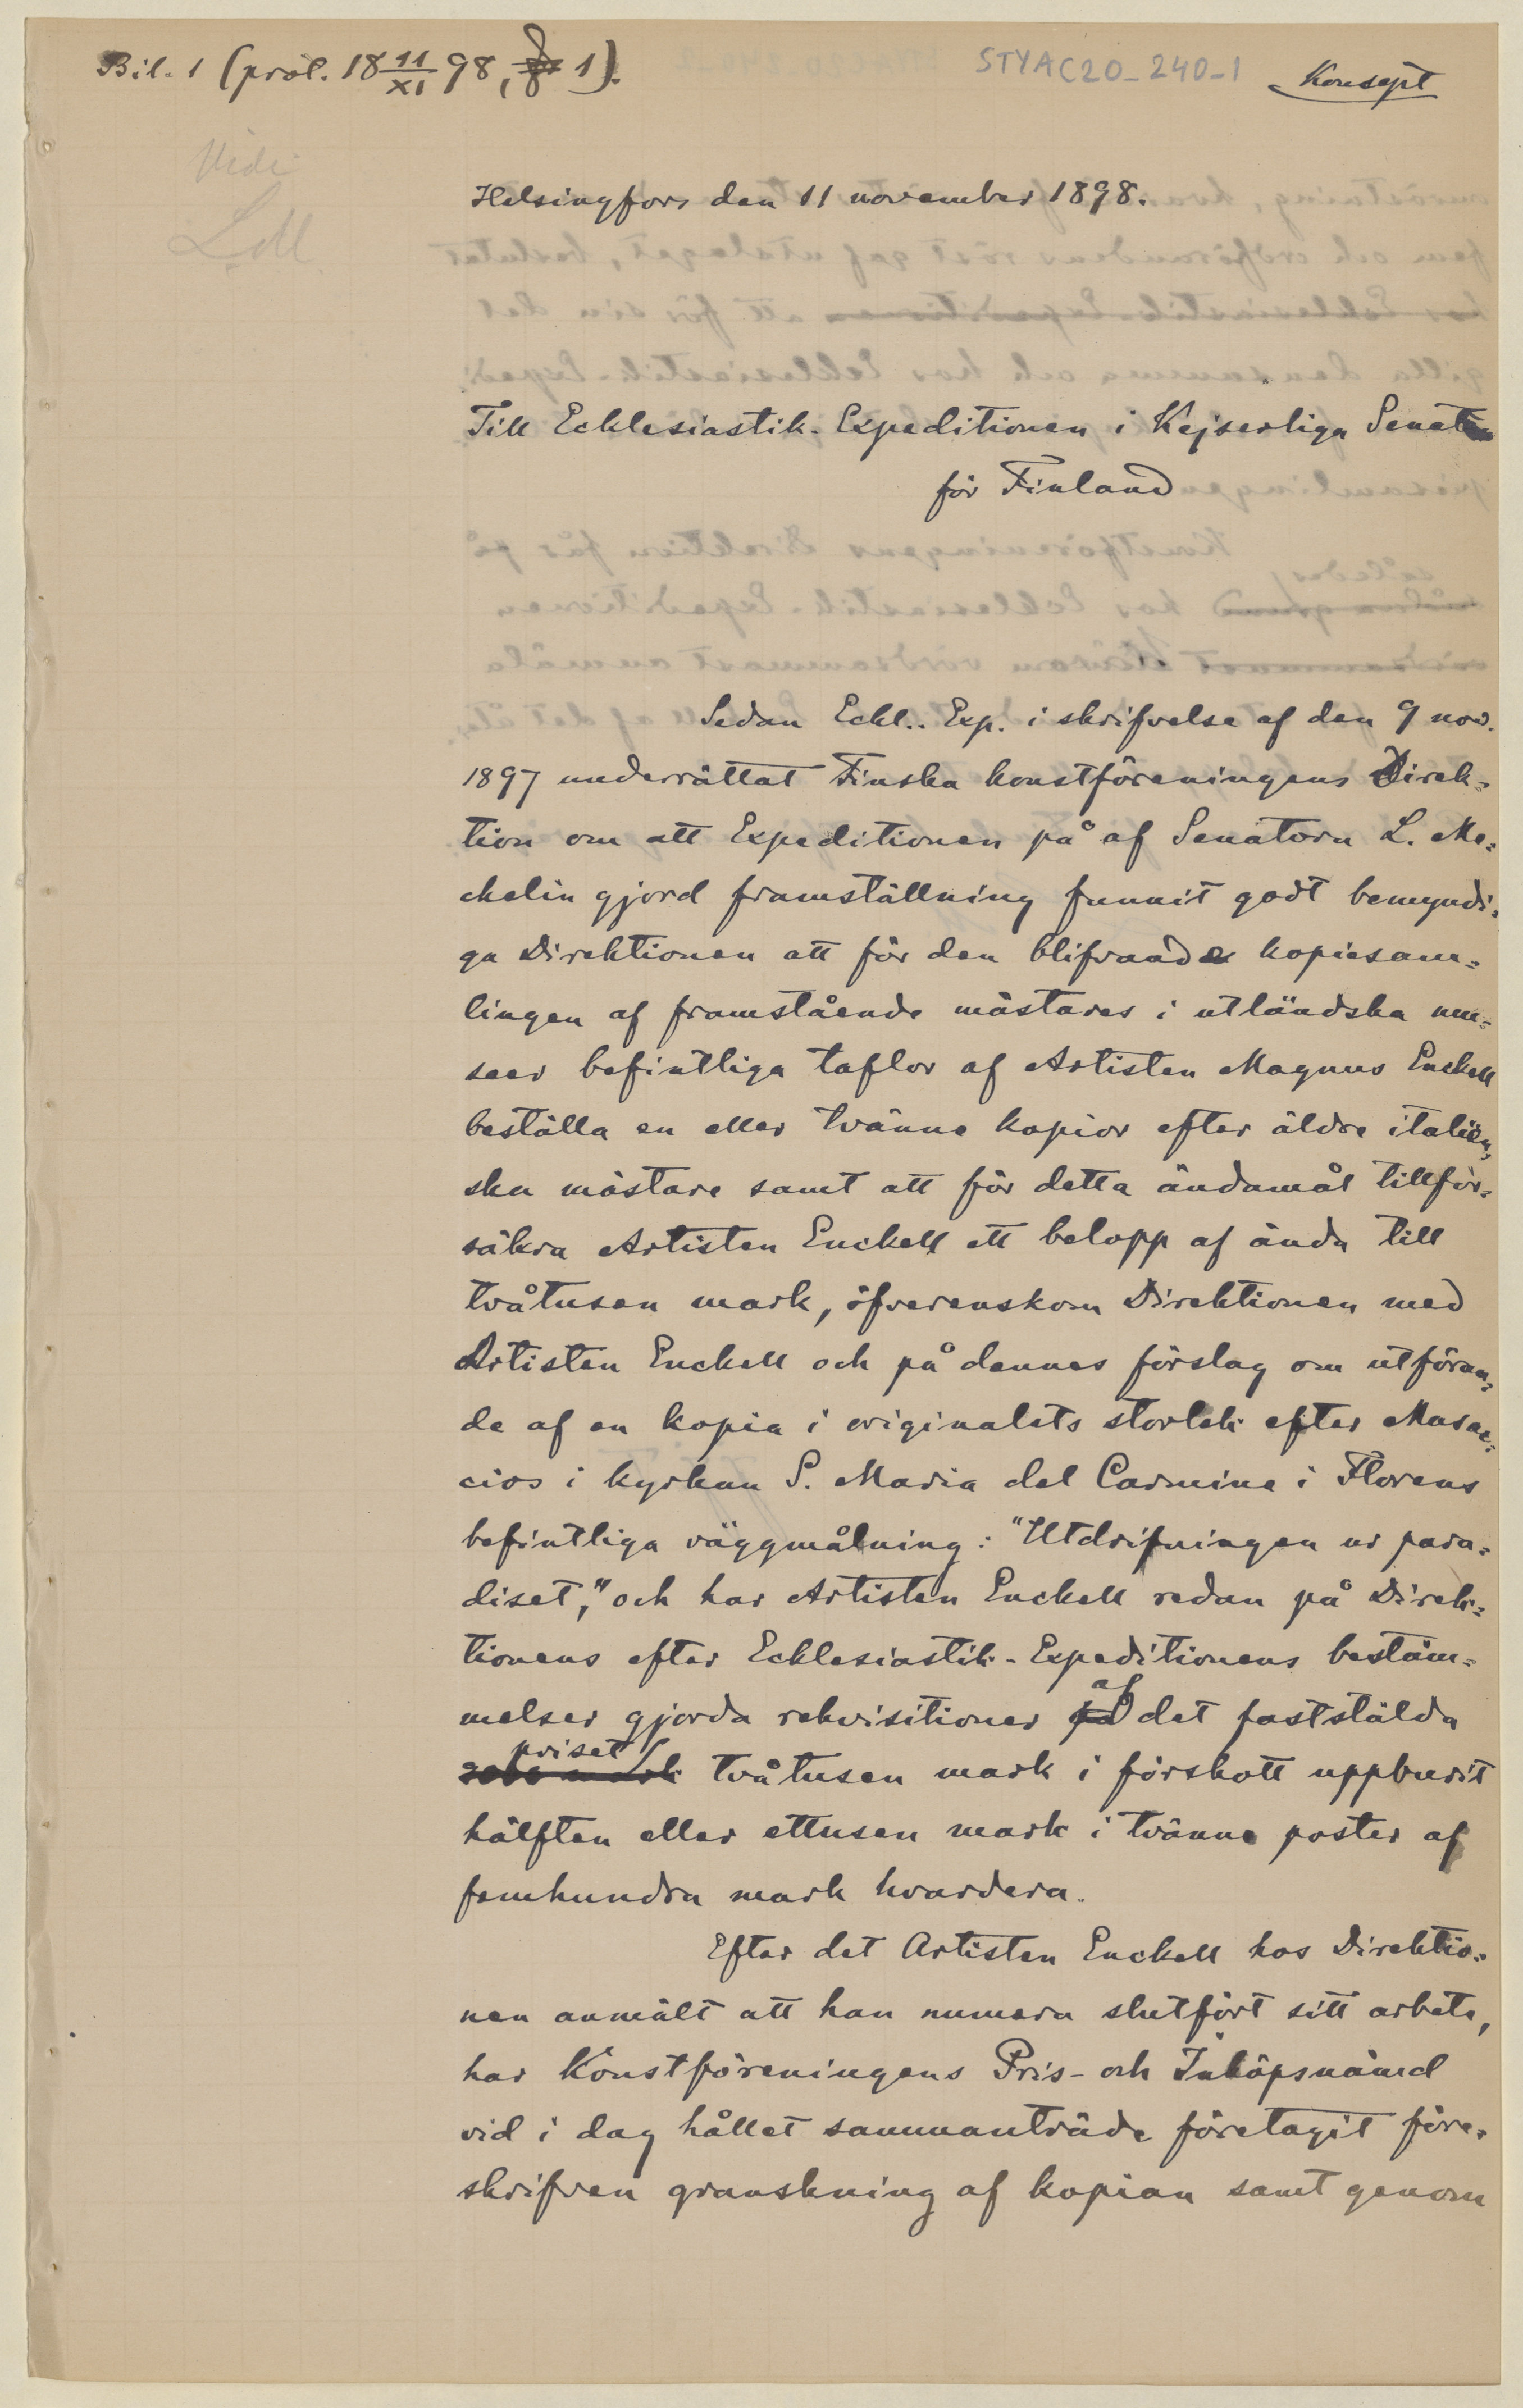 Bil. 1 (prot. 18 11/XI 98, § 1).
STYA C20_240-1
Konsept
Vidi
Helsingfors den 11 november 1898.
Till Ecklesiastik-Expeditionen i Kejserliga Senaten
för Finland
Sedan Eckl.. Exp. i skrifvelse af den 9 nov.
1897 underrättat Finska konstföreningens Direk=
tion om att Expeditionen på af Senatorn L. Me=
chelin gjord framställning funnit godt bemyndi=
ga Direktionen att för den blifvande kopiesam=
lingen af framstående mästares i utländska mu=
seer befintliga taflor af Artisten Magnus Enckell
beställa en eller tvänne kopior efter äldre italien=
ska mästare samt att för detta ändamål tillför=
säkra Artisten Enckell ett belopp af ända till
tvåtusen mark, öfverenskom Direktionen med
Artisten Enckell och på dennes förslag om utföran=
de af en kopia i originalets storlek efter Masac=
cios i kyrkan S. Maria del Carmine i Florens
befintliga väggmålning: "Utdrifningen ur para=
diset," och har Artisten Enckell redan på Direk=
tionens efter Ecklesiastik-Expeditionens bestäm=
melser gjorda rekvisitioner på af det fastställda
2000 mark priset tvåtusen mark i förskott uppburit
hälften eller ettusen mark i tvänne poster af
femhundra mark hvardera.
Efter det Artisten Enckell hos Direktio=
nen anmält att han numera slutfört sitt arbete,
har Konstföreningens Pris- och Inköpsnämd
vid i dag hållet sammanträde företagit före=
skrifven granskning af kopian samt genom